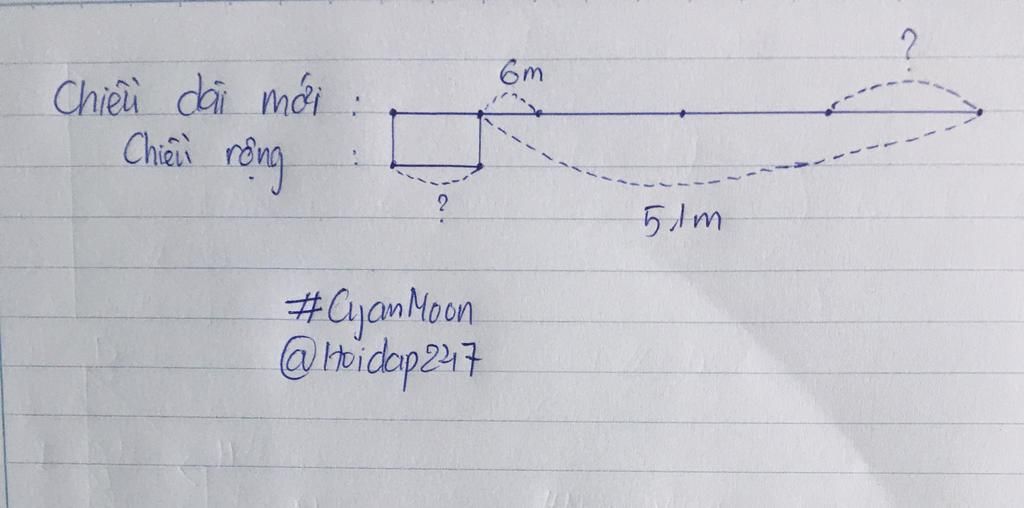 ?
6m
Chiều dài mới :
Chiều rộng :
?
51m
#CyanMoon
@Hoidap247